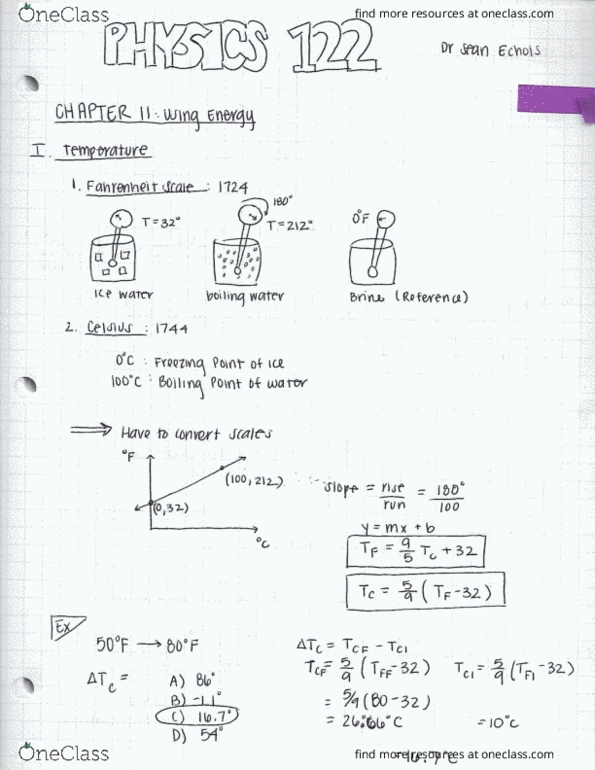 OneClass
find more resources at oneclass.com
PHYSICS 122
Dr Sean Echols
CHAPTER 11: Using Energy
I. Temperature
1. Fahrenheit scale : 1724
180°
T = 32°
T = 212°
0°F
ice water
boiling water
Brine (Reference)
2. Celsius : 1744
0°C : Freezing Point of ice
100°C : Boiling Point of water
⟹ Have to convert scales
°F
(100, 212)
(0,32)
°C
slope = rise/run = 180°/100
y = mx + b
T_F = 9/5 T_C + 32
T_C = 5/9 (T_F - 32)
Ex
50°F → 80°F
ΔT_C =
A) 86°
B) -1.1°
C) 16.7°
D) 54°
ΔT_C = T_CF - T_CI
T_CF = 5/9 (T_FF - 32)
T_CI = 5/9 (T_FI - 32)
= 5/9 (80 - 32)
= 26.66°C
= 10°C
OneClass
find more resources at oneclass.com